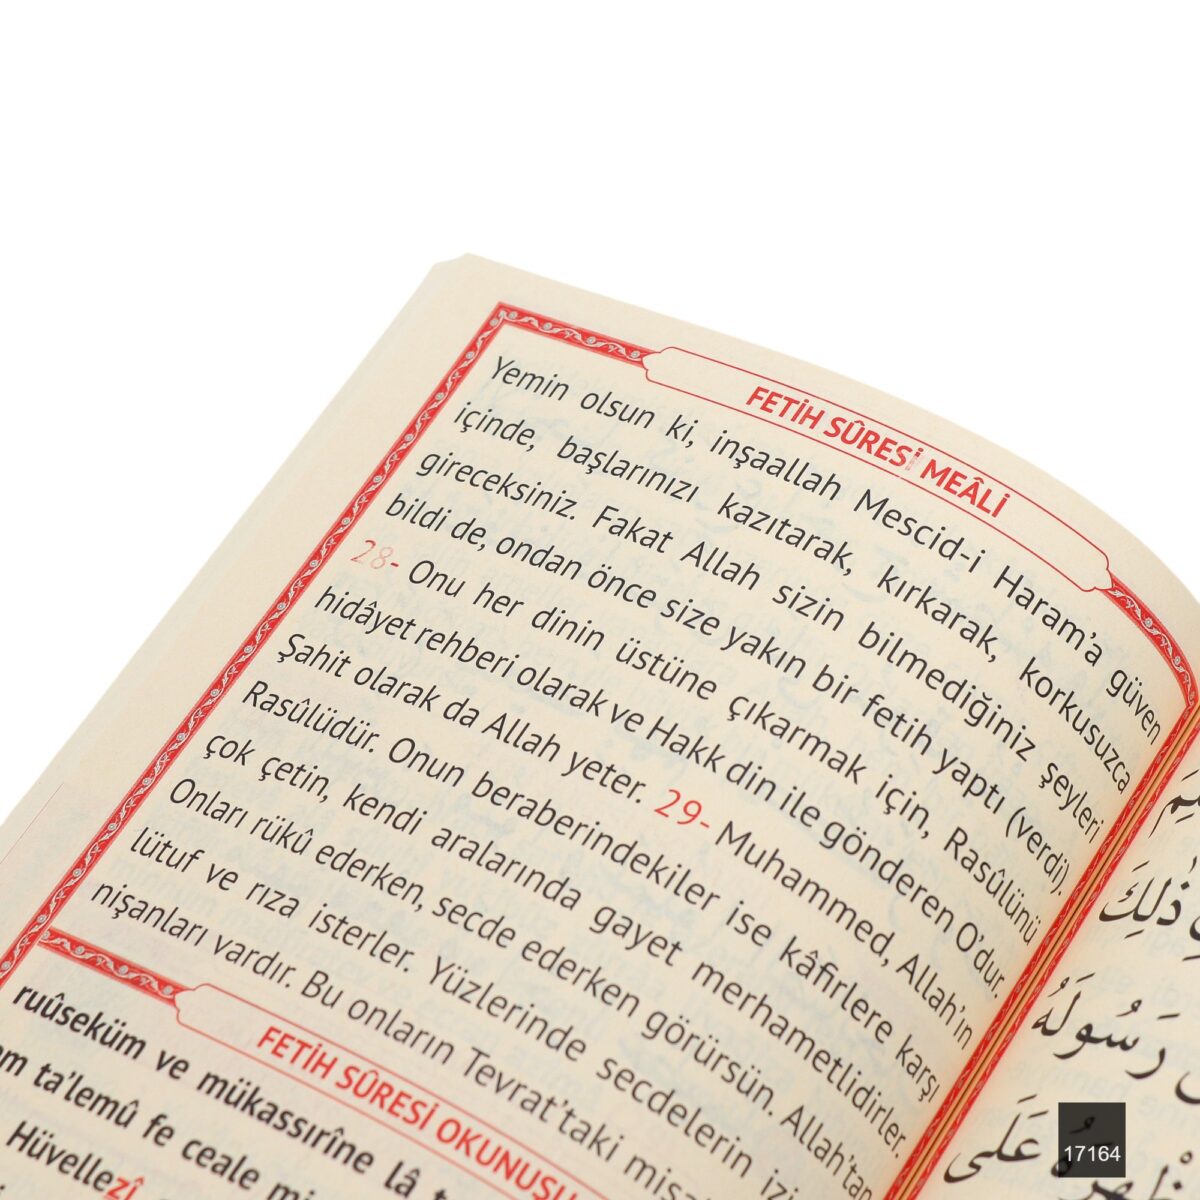 FETİH SÛRESİ MEÂLİ
Yemin olsun ki, inşaallah Mescid-i Haram'a güven
içinde, başlarınızı kazıtarak, kırkarak, korkusuzca
gireceksiniz. Fakat Allah sizin bilmediğiniz şeyleri
bildi de, ondan önce size yakın bir fetih yaptı (verdi).
28- Onu her dinin üstüne çıkarmak için, Rasûlünü
hidâyet rehberi olarak ve Hakk din ile gönderen O'dur.
Şahit olarak da Allah yeter. 29- Muhammed, Allah'ın
Rasûlüdür. Onun beraberindekiler ise kâfirlere karşı
çok çetin, kendi aralarında gayet merhametlidirler.
Onları rükû ederken, secde ederken görürsün. Allah'tan
lütuf ve rıza isterler. Yüzlerinde secdelerin izi
nişanları vardır. Bu onların Tevrat'taki
FETİH SÛRESİ OKUNUŞU
ruûseküm ve mükassırîne lâ
ta'lemû fe ceale
Hüvellezî
ذٰلِكَ
رَسُولَهُ
عَلَى
17164